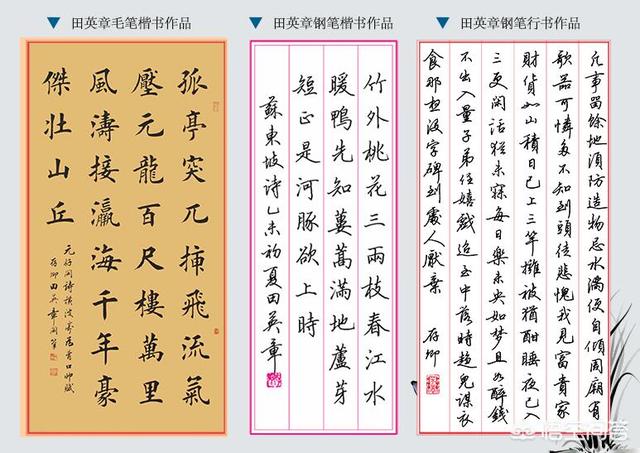 田英章毛笔楷书作品
孤亭突兀插飛流氣
壓元龍百尺樓萬里
風濤接瀛海千年豪
傑壯山丘
元好問詩橫波亭為青口帥賦
存卿田英章
田英章钢笔楷书作品
竹外桃花三兩枝春江水
暖鴨先知蔞蒿滿地蘆芽
短正是河豚欲上時
蘇東坡诗乙未初夏田英章
田英章钢笔行书作品
凡事留馀地須防造物忌水满便自倾周廟有
欹器可憐多不知到頭徒悲愧我見富貴家
財貨如山積日已上三竿擁被猶酣睡夜已入
三更闲話猶未寐每日樂未央如梦且如醉錢
不出入量子弟任嬉戲迨至中落時兒謀衣
食那没字碑到處人厭棄
存卿